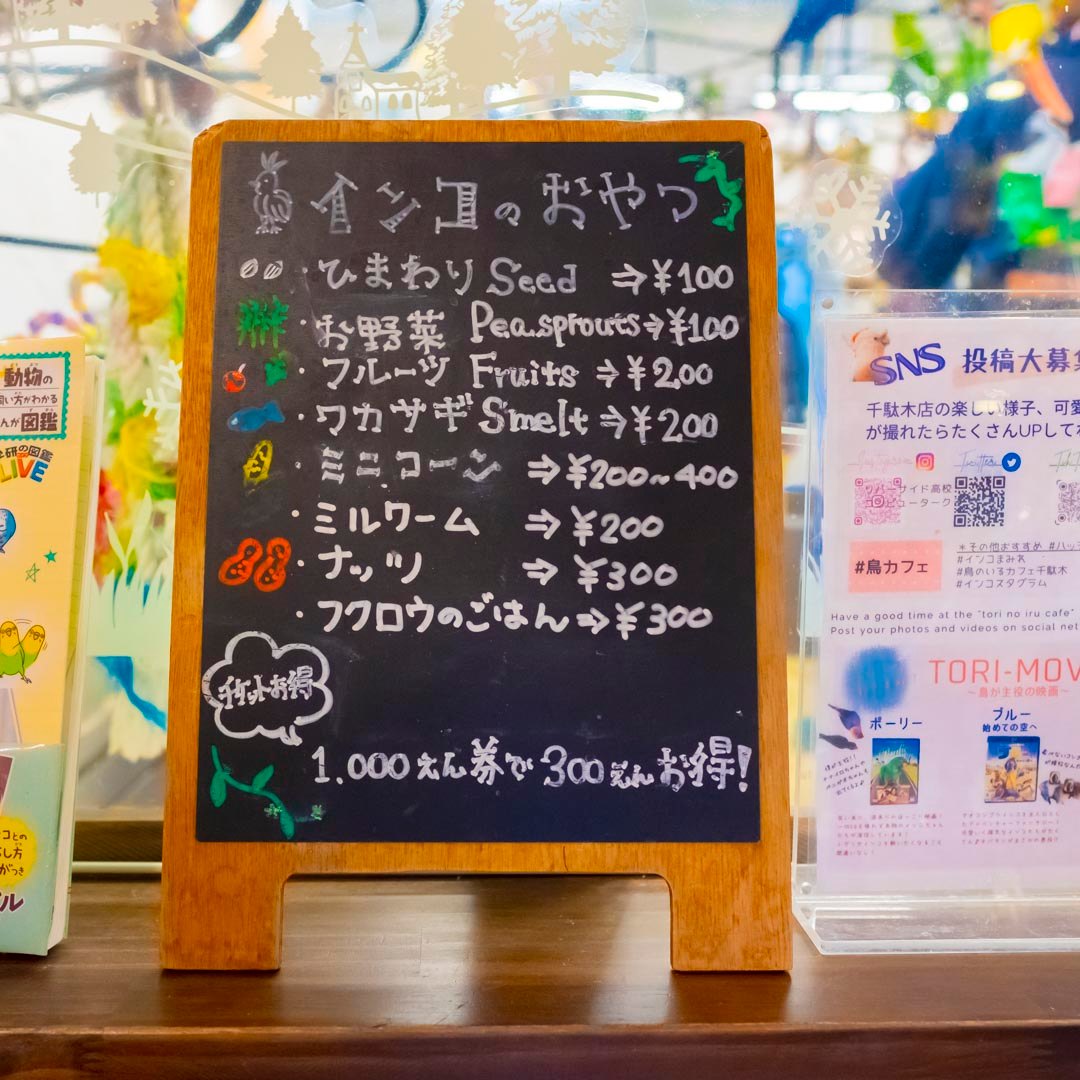 インコのおやつ
・ひまわり Seed ⇒¥100
・お野菜 Pea.sprouts⇒¥100
・フルーツ Fruits ⇒¥200
・ワカサギ Smelt ⇒¥200
・ミニコーン ⇒¥200~400
・ミルワーム ⇒¥200
・ナッツ ⇒¥300
・フクロウのごはん⇒¥300
チケットお得
1.000えん券で300えんお得!
動物の
飼い方がわかる
図鑑
学研の図鑑
LIVE
SNS 投稿大募集
千駄木店の楽しい様子、可愛
が撮れたらたくさんUPしてね
Instagram
Twitter
#鳥カフェ
*その他おすすめ #ハッ
#インコまみれ
#鳥のいるカフェ千駄木
#インコスタグラム
Have a good time at the "tori no iru cafe"
Post your photos and videos on social net
TORI-MOV
~鳥が主役の映画~
ポーリー
ブルー
始めての空へ